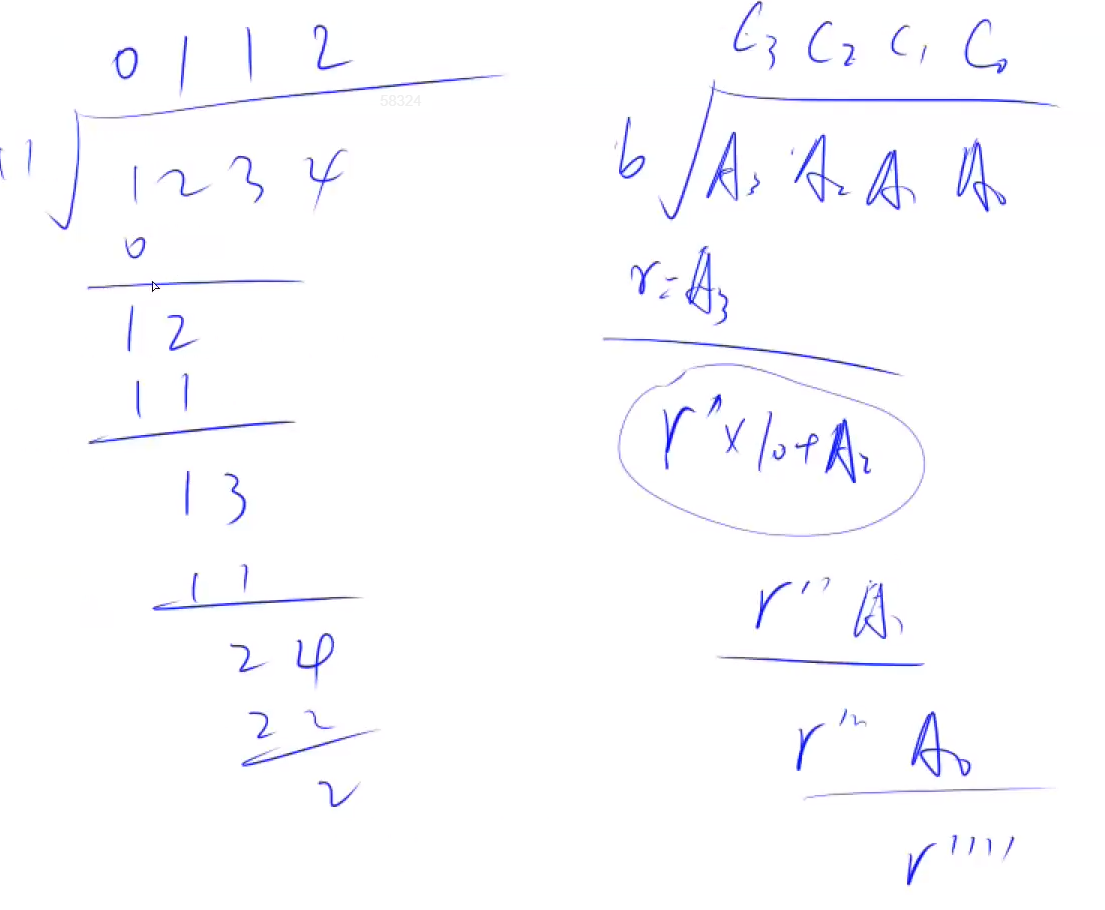 0 1 1 2
58324
11 √ 1 2 3 4
0
1 2
1 1
1 3
1 1
2 4
2 2
2
C₃ C₂ C₁ C₀
b √ A₃ A₂ A₁ A₀
r = A₃
r' × 10 + A₂
r'' A₁
r''' A₀
r''''